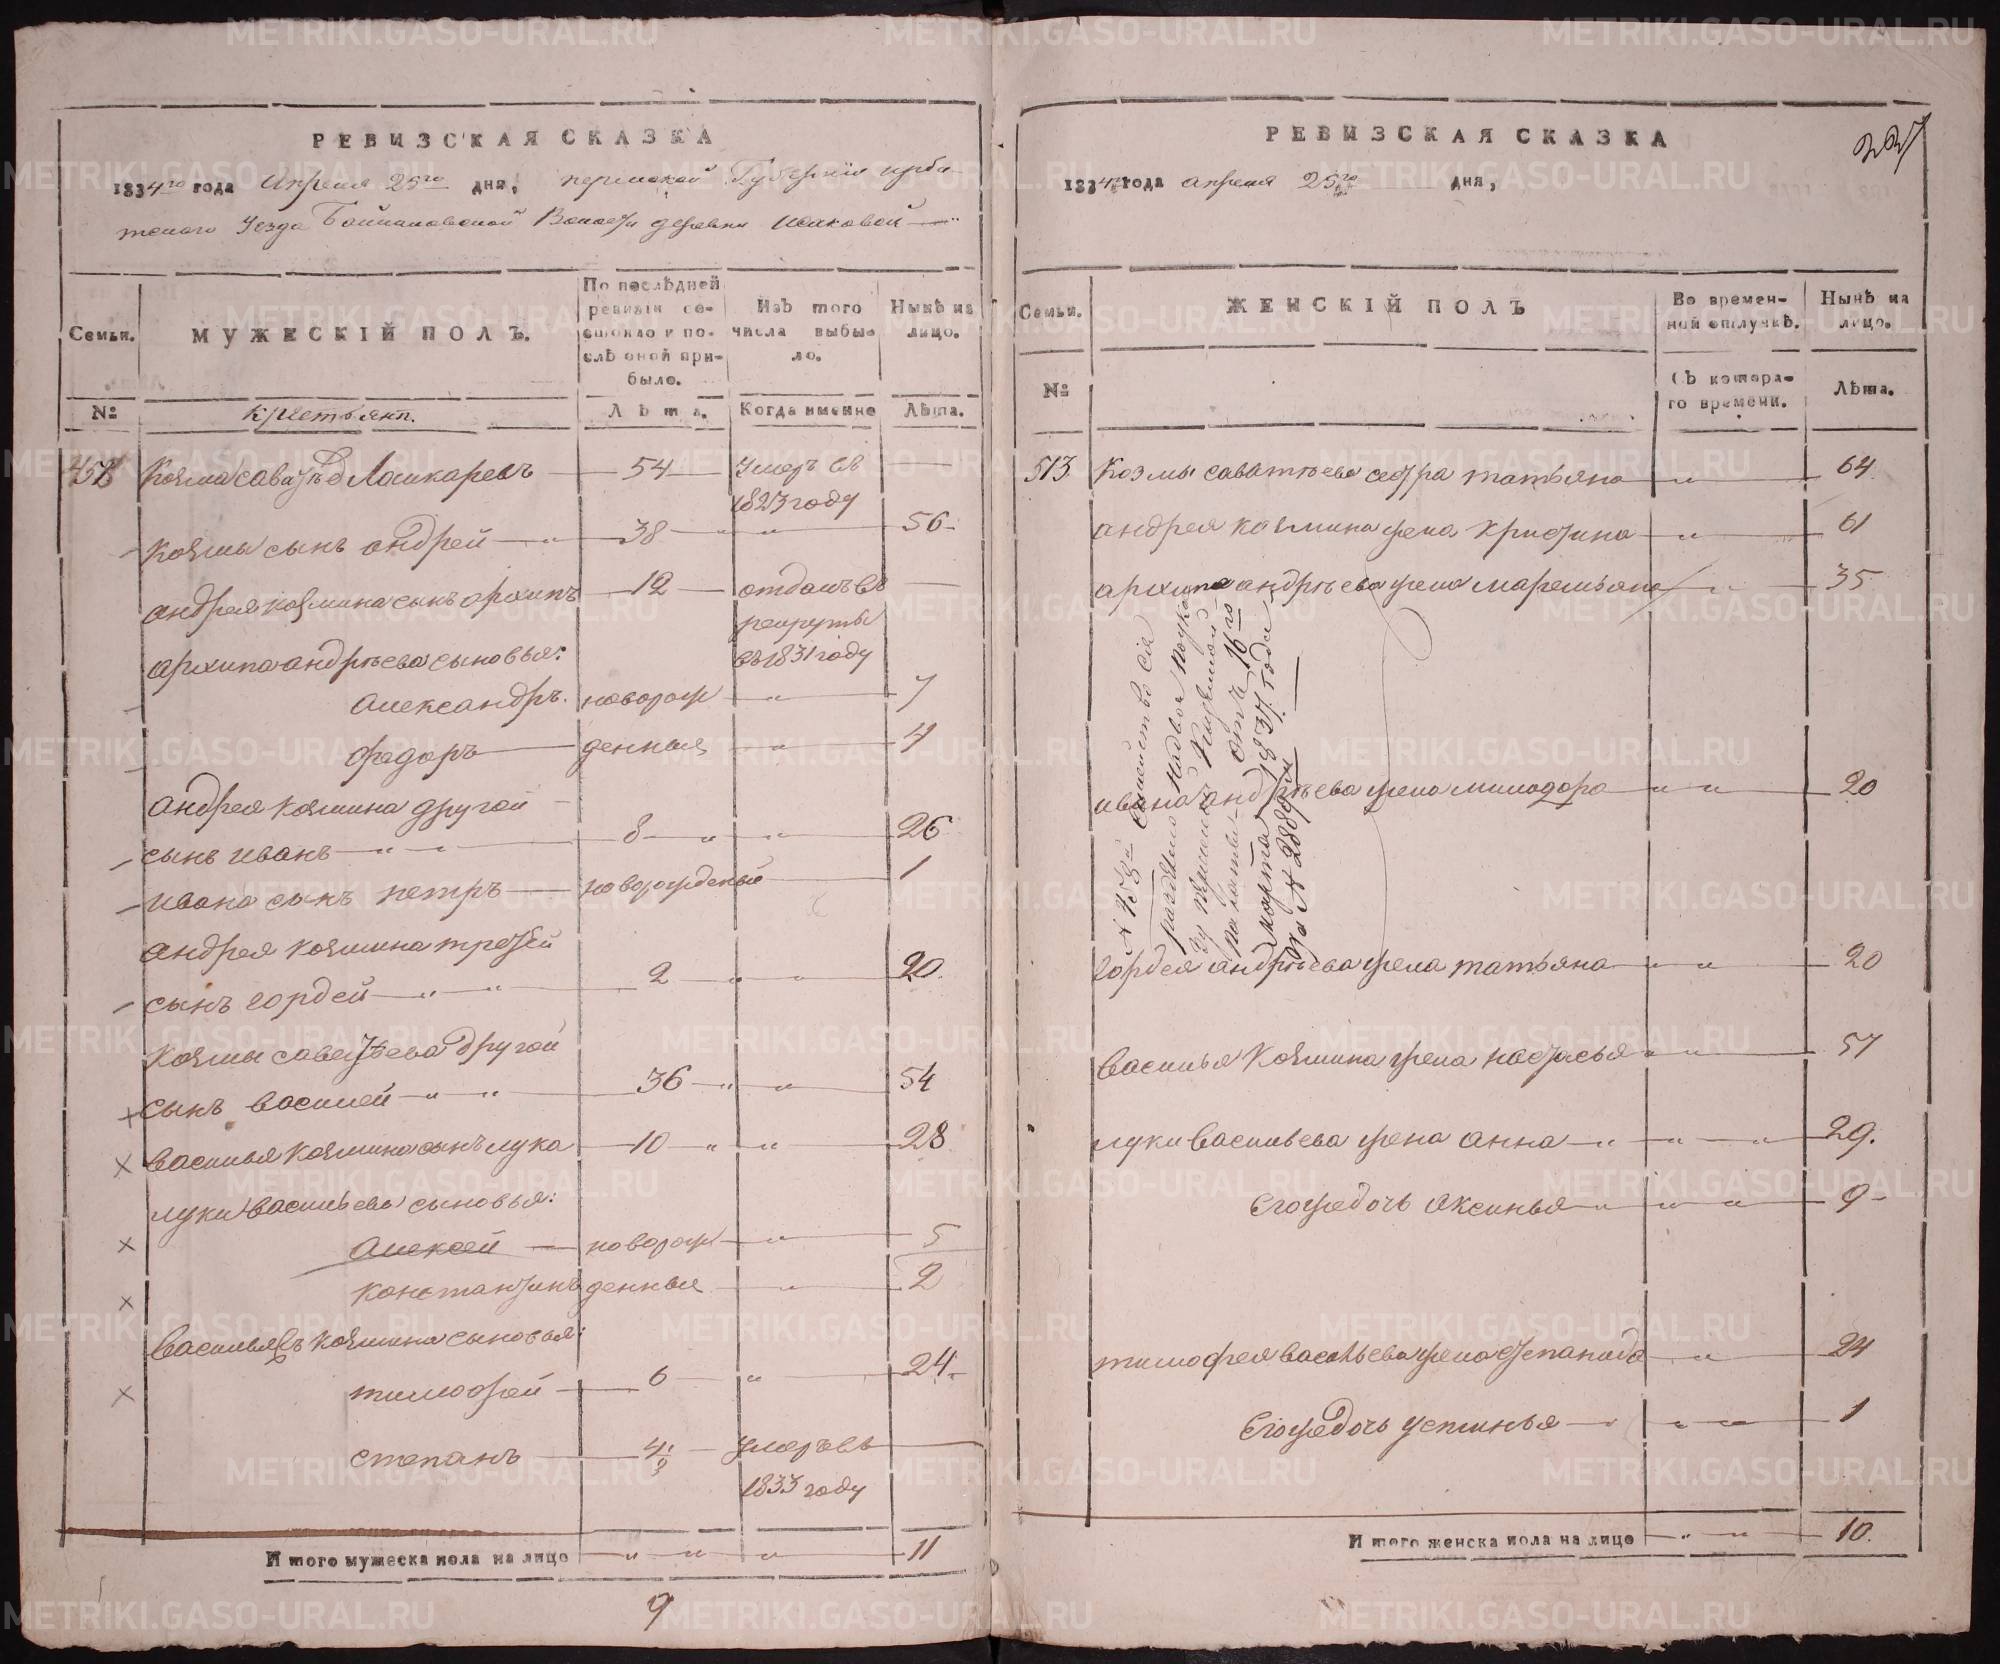 РЕВИЗСКАЯ СКАЗКА
1834го года Апреля 25го дня, пермской Губернии ирби-
тского Уезда Волости деревни
Семьи. МУЖЕСКІЙ ПОЛЪ. По послѣдней ревизіи состояло и послѣ оной прибыло. Изъ того числа выбыло. Нынѣ на лицо.
№ крестьяне. Лѣта. Когда именно Лѣта.
Козма саватѣев 54 умеръ въ
1823 году
Козмы сынъ андрей " 38 " " 56
андрея козмина сынъ архипъ 12 отданъ въ
рекруты
въ 1831 году
архипа андрѣева сыновья:
Александръ. новорож " 7
Федоръ денныя " 4
андрея козмина другой
сынъ иванъ " " 8 " " 26
ивана сынъ петръ новорожденый 1
андрея козмина третей
сынъ гордей " " 2 " " 20.
козмы саватѣева другой
сынъ василей " " 36 " " 54
василья козмина сынъ лука 10 " " 28
луки васильева сыновья:
Алексей новорож " 5
константинъ денныя " 2
василья козмина сыновья:
тимофей 6 " 24.
степанъ 4. умеръ въ
1833 году
И того мужеска пола на лицо " " " 11
9
РЕВИЗСКАЯ СКАЗКА
227
1834го года апреля 25го дня,
Семьи. ЖЕНСКІЙ ПОЛЪ Во временной отлучкѣ. Нынѣ на лицо.
№ Съ котораго времени. Лѣта.
513 козмы саватѣева сестра татьяна " 64
андрея козмина жена христина " 61
архипа андрѣева жена маремьяна " 35
семейство сіе
раздѣлено на двое по указу
отъ 16го
марта 1837 года
за № 2889м
ивана андрѣева жена минодора " " 20
гордея андрѣева жена татьяна " " 20
василья козмина жена настасья " " 57
луки васильева жена анна " " " 29.
Егожъ дочь аксинья " " " 9
тимофея васильева жена степанида " 24
Егожъ дочь устинья " " " 1
И того женска пола на лицо " " 10.
METRIKI.GASO-URAL.RU